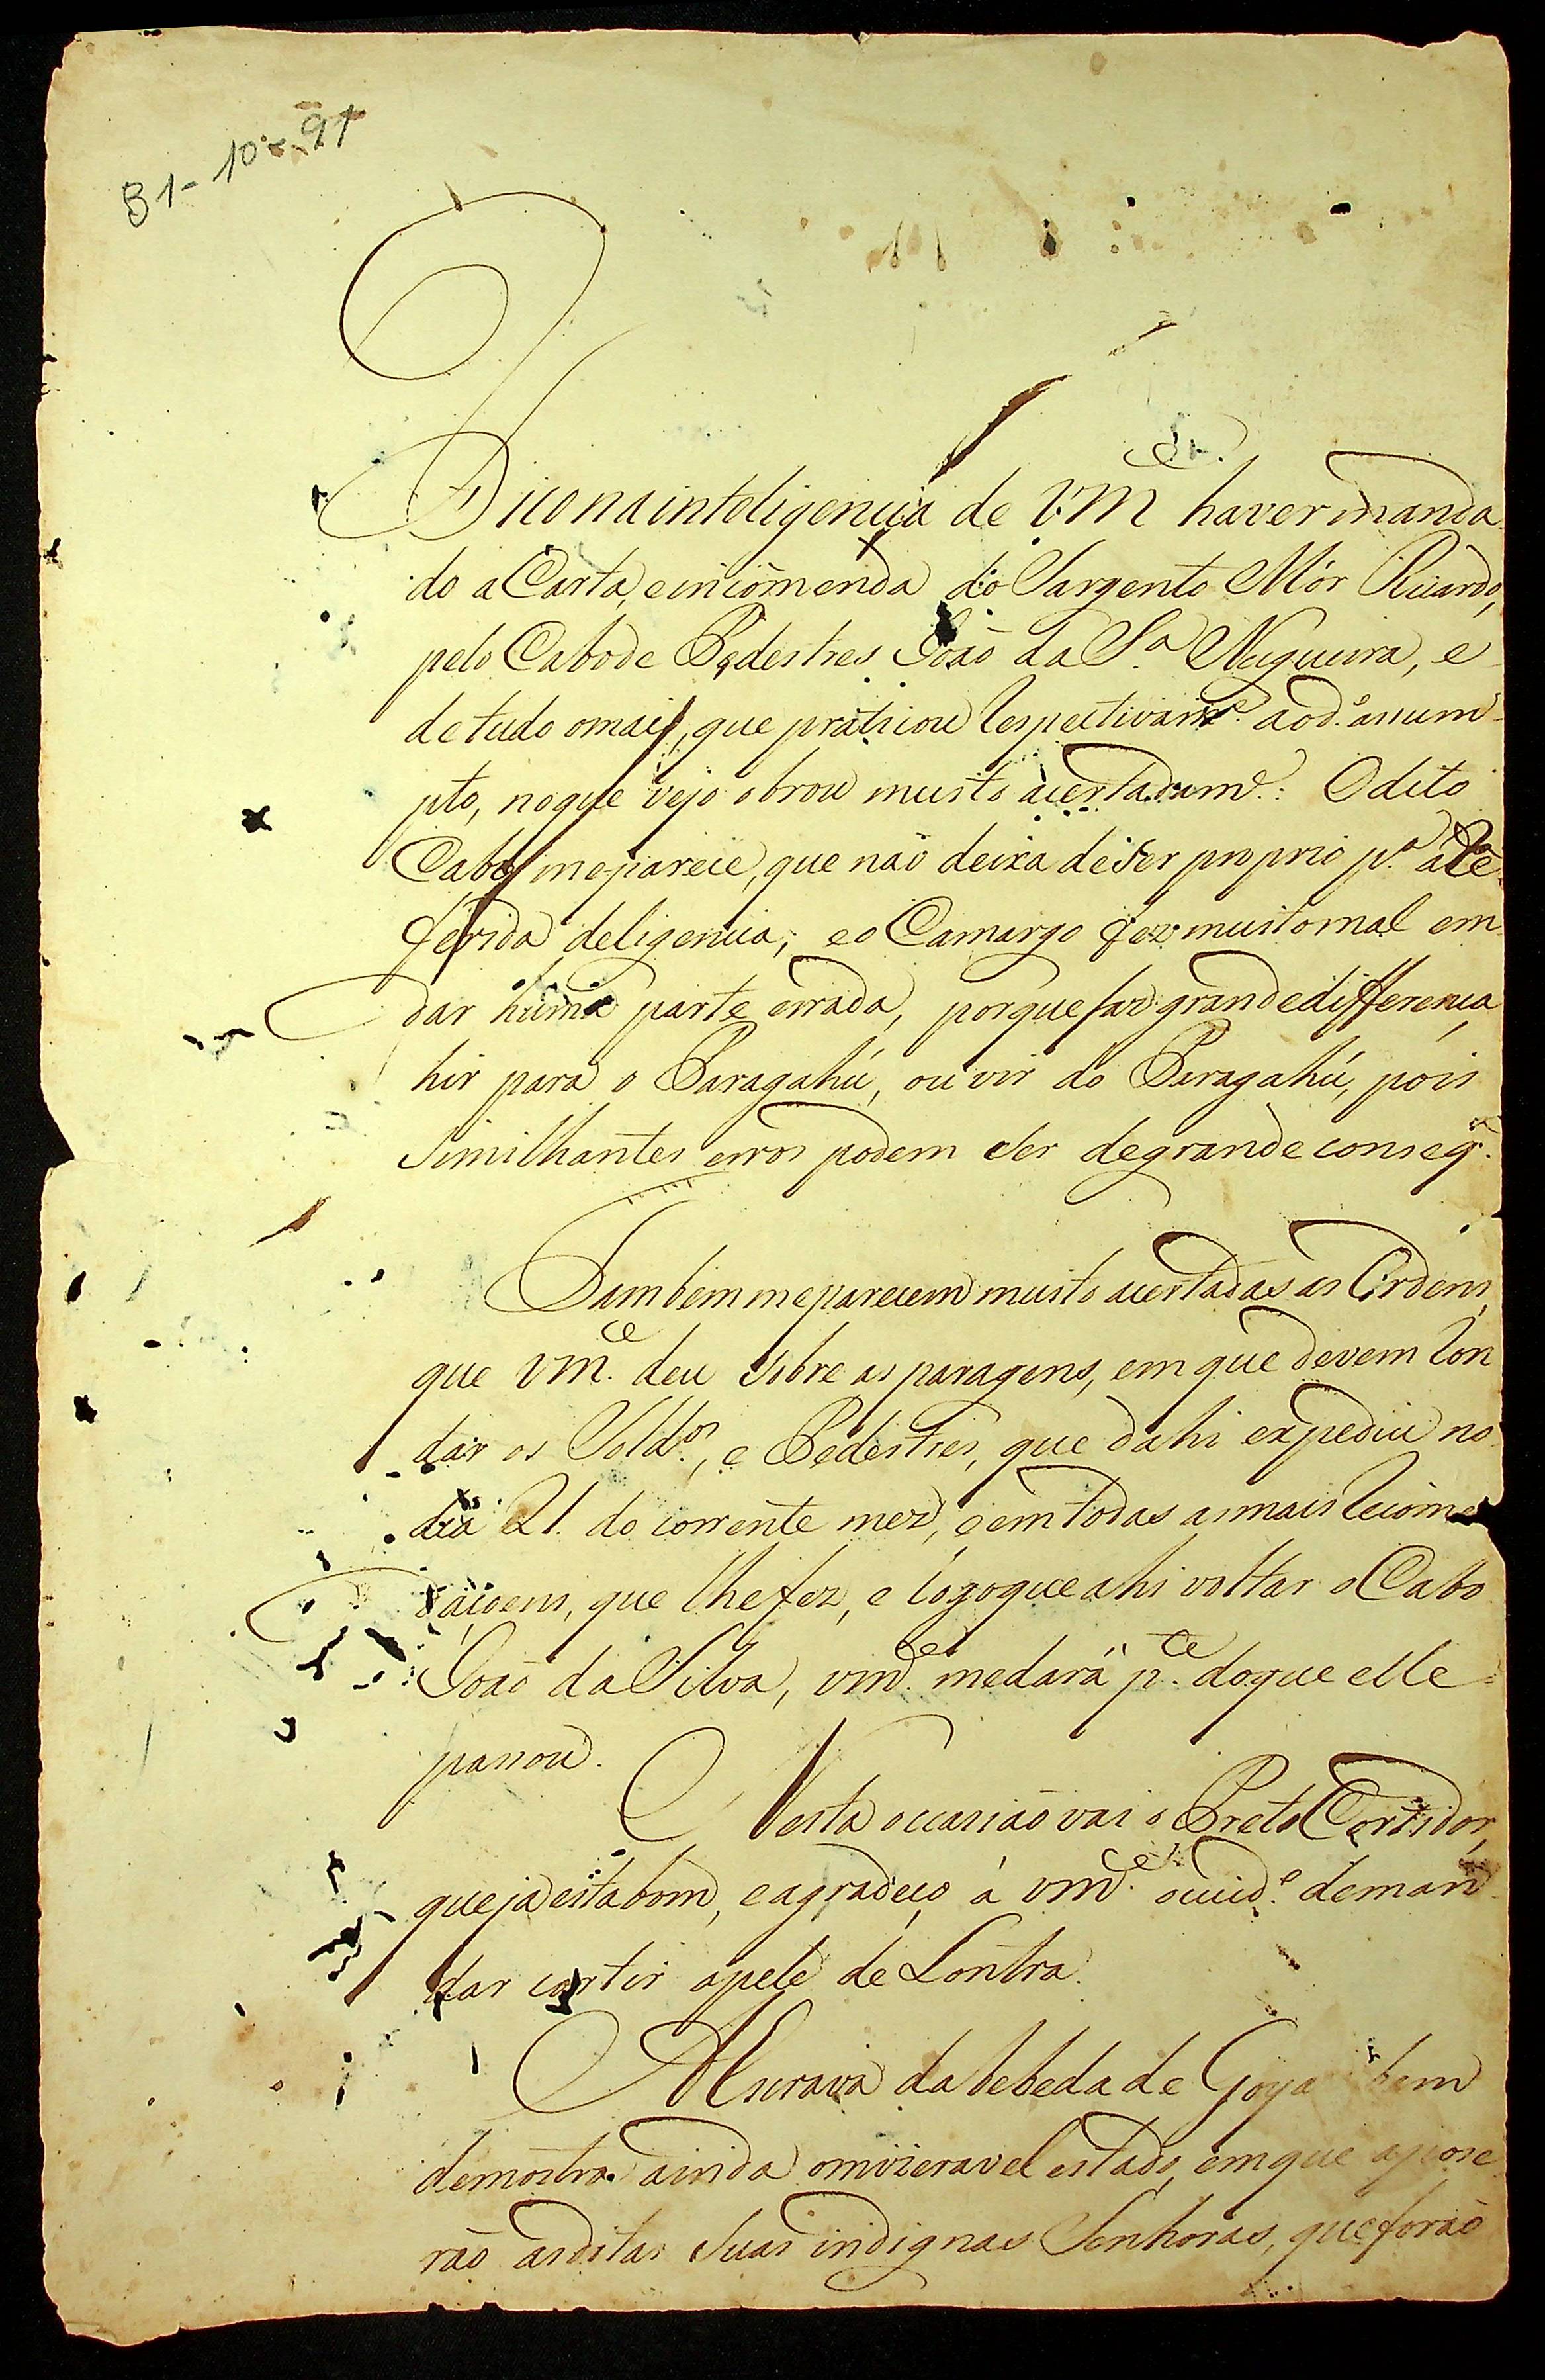 31-10-91
Fico na inteligencia de Vm.ce haver manda
do a Carta, e incòmenda do Sargento Mór Ricardo,
pelo Cabo de Pedestres João da S.a Nugueira, e
de tudo o mais, que praticou respectivam.e ao d.o assum-
pto, no que vejo obrou muito acertadam.e: O dito
Cabo me parece, que não deixa de ser proprio p.a a re-
ferida deligencia; e o Camargo fez muito mal em
dar huma parte errada, porque faz grande differença
hir para o Paragahú, ou vir do Paragahú, pois
similhantes erros podem ser de grande conseq.a
Tambem me parecem muito acertadas as Ordens,
que Vm.ce deu sobre as paragens, em que devem ron
dar os Sold.os, e Pedestres, que dahi expediu no
dia 21. do corrente mez, e em todas as mais recòmen
daçoens, que lhe fez, e logo que ahi voltar o Cabo
João da Silva, vm.ce me dará p.te do que elle
passou.
Nesta occasião vai o Preto Cortidor,
que ja esta bom, e agradeço á vm.ce o cuid.o de man
dar cortir a pele de Lontra.
A Escrava da bebeda de Goya bem
demostra ainda o mizeravel estado, em que a poze
rão as ditas suas indignas Senhoras, que forão